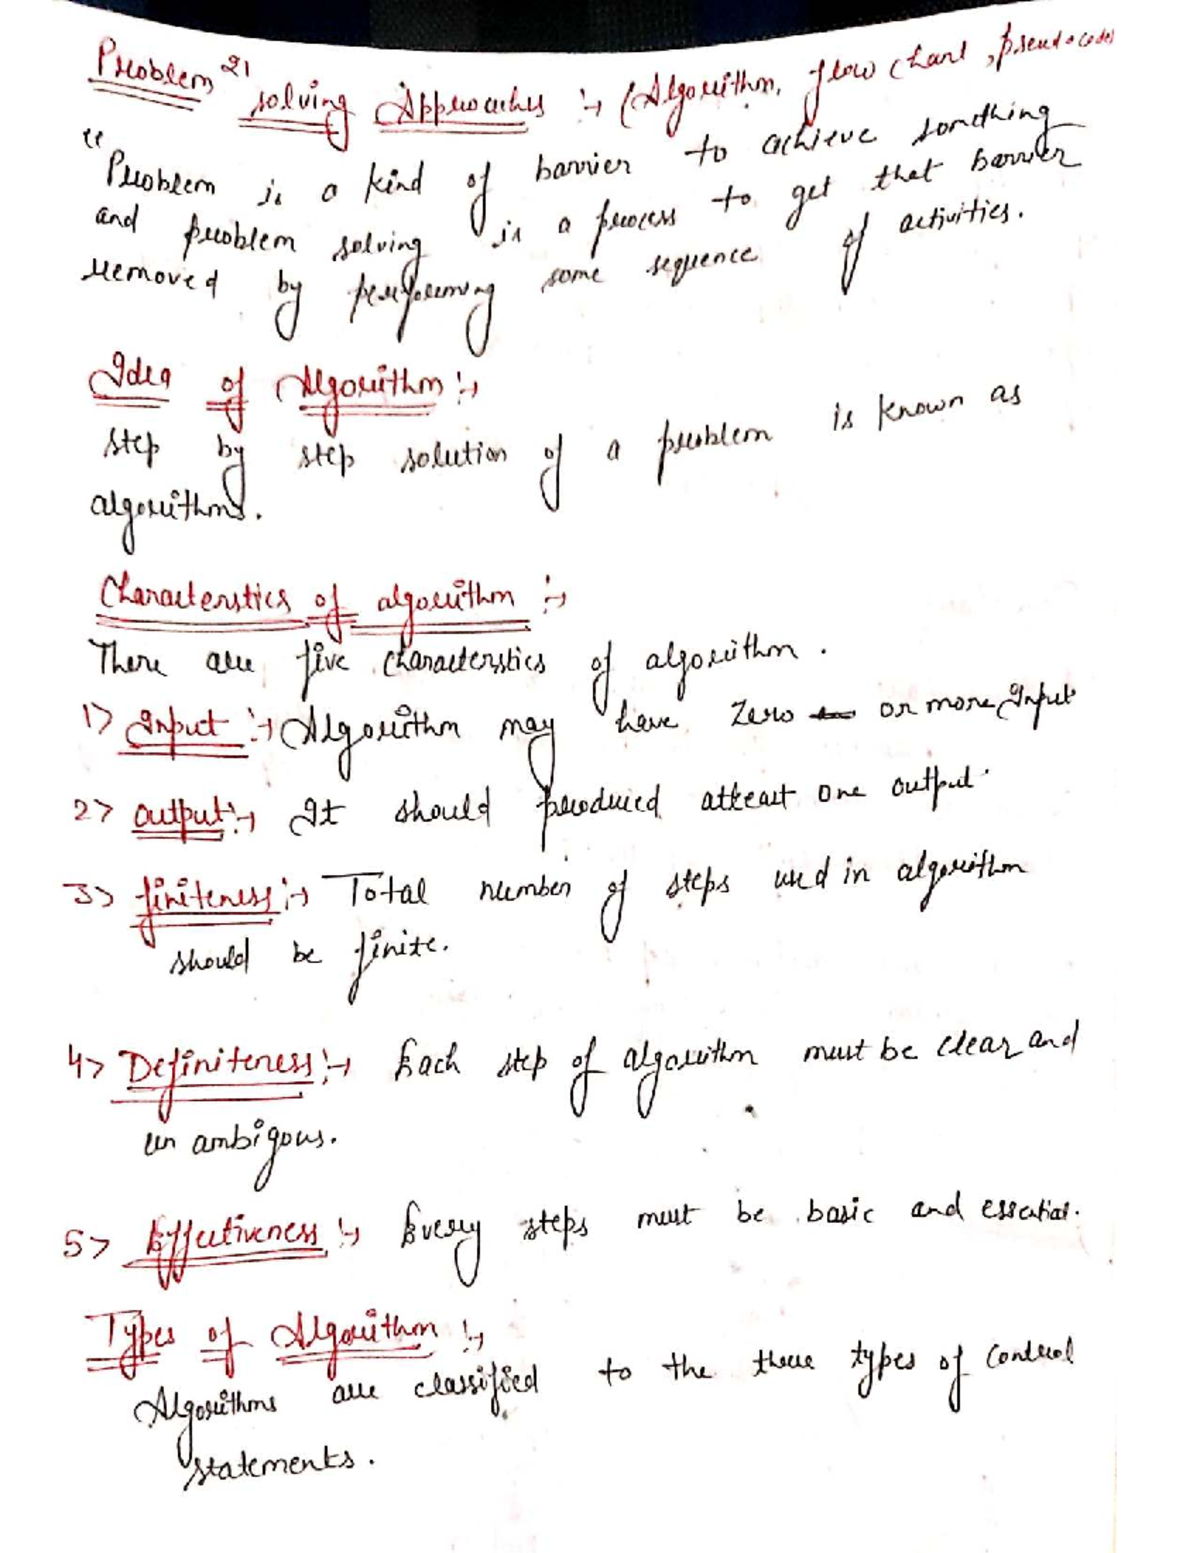 Problem 21 solving Approaches :→ (Algorithm, flow chart, pseudocodes
"Problem is a kind of barrier to achieve something
and problem solving is a process to get that barrier
removed by performing some sequence of activities.
Idea of Algorithm :→
step by step solution of a problem is known as
algorithms.
Characterstics of algorithm :→
There are five characterstics of algorithm.
1> Input :→ Algorithm may have zero or more Input
2> output :→ It should produced atleast one output.
3> finiteness :→ Total number of steps used in algorithm
should be finite.
4> Definiteness :→ Each step of algorithm must be clear and
un ambigous.
5> Effectiveness :→ Every steps must be basic and essential.
Types of Algorithm :→
Algorithms are classified to the three types of control
statements.